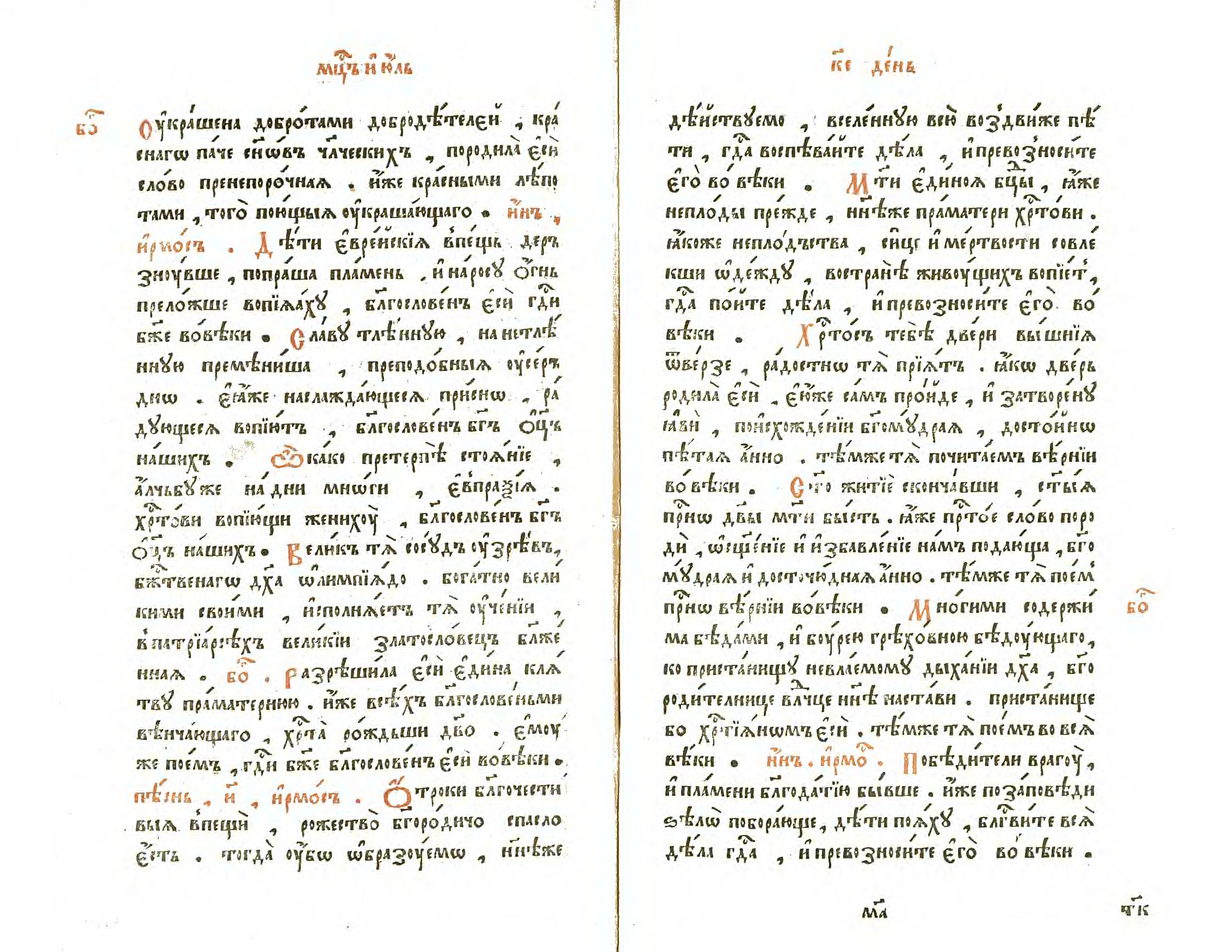 мцⷭ҇ъ і҆ю́ль
бо҇
Оу҆кра́шена добро́тами добродѣ́телей , кра
снагѡ па́че сн҃ѡвъ чл҃ческихъ , породила̀ є҆сѝ
сло́во пренепоро́чная . и҆́же кра́сными лѣ́по
тами , того̀ пою́щыѧ оу҆краша́ющаго . и҆́нъ ,
і҆рмо́съ . Дѣ́ти є҆вре́йскїѧ впе́щь дер
зноу́вше , попра́ша пла́мень , и҆ на́росу ѻ҆́гнь
прело́жше вопїѧ́хꙋ , бл҃гослове́нъ є҆сѝ гдⷭ҇и
бж҃е во́ вѣки . Сла́вꙋ тлѣ́ннꙋю , на нетлѣ́
ннꙋю премѣни́ша , преподо́бныѧ оу҆се́ръ
днѡ . є҆ѧ́же наслажда́ющесѧ при́снѡ , ра́
дꙋющесѧ вопїю́тъ , бл҃гослове́нъ бг҃ъ ѻ҆ц҃ъ
на́шихъ . Ѽ ка́ко претерпѣ̀ стоѧ́нїе ,
а҆́лчьбꙋ же на́ дни мнѡ́ги , є҆ѵпраѯі́ѧ .
хрⷭ҇то́ви вопїю́щи женихоу̀ , бл҃гослове́нъ бг҃ъ
ѻ҆ц҃ъ на́шихъ . Вели́къ тѧ̀ сосꙋ́дъ оу҆зрѣ́въ ,
бжⷭ҇твенагѡ дх҃а ѡ҆лимпїѧ́до . бога́тно вели́
кими свои́ми , и҆сполнѧ́етъ тѧ̀ оу҆че́нїи ,
в патрїа́рсѣхъ вели́кїи златосло́вецъ бл҃же́
ннаѧ . бо҇ . Разрѣши́ла є҆сѝ є҆ди́на клѧ́
твꙋ прама́тернюю . и҆́же всѣ́хъ бл҃гослове́ньми
вѣнча́ющаго , хрⷭ҇та̀ ро́ждьши дв҃о . є҆моу́
же пое́мъ , гдⷭ҇и бж҃е бл҃гослове́нъ є҆сѝ во́ вѣки .
пѣ́снь , и҃ , і҆рмо́съ . Ѻ҆́троки бл҃гочести́
выѧ в пещѝ , рожество̀ бг҃оро́дичо спасло̀
є҆́сть . тогда̀ оу҆́бѡ ѡ҆бразоу́емѡ , нн҃ѣ же
к҃е де́нь
дѣ́йствꙋемо , вселе́ннꙋю всю̀ воздви́же пѣ́
ти , гдⷭ҇а воспѣва́йте дѣла̀ , и҆ превозноси́те
є҆го̀ во́ вѣки . Мт҃и є҆ди́ноѧ бцⷣы , ꙗ҆́же
непло́ды пре́жде , нн҃ѣ же прама́тери хрⷭ҇то́ви .
ꙗ҆́коже непло́дъства , си́це и҆ ме́ртвости совле́
кши ѡ҆де́ждꙋ , востранѣ̀ живоу́щихъ вопїе́т ,
гдⷭ҇а по́йте дѣла̀ , и҆ превозноси́те є҆го̀ во́
вѣки . Хрⷭ҇то́съ тебѣ̀ две́ри вы́шнїѧ
ѿве́рзе , ра́достнѡ тѧ̀ прїѧ́тъ . ꙗ҆́кѡ две́рь
родила̀ є҆сѝ , є҆́юже са́мъ про́йде , и҆ затворе́нꙋ
ꙗ҆вѝ , по и҆схожде́нїи бг҃омꙋ́драѧ , досто́йнѡ
пѣ́таѧ а҆́нно . тѣ́мже тѧ̀ почита́емъ вѣ́рнїи
во́ вѣки . Ст҃о житїѐ сконча́вши , ст҃ы́ѧ
прⷭ҇нѡ дв҃ы мт҃и бы́сть . ꙗ҆́же прⷭ҇то́е сло́во поро
дѝ , ѡ҆сщ҃е́нїе и҆ и҆збавле́нїе на́мъ подаю́ща , бг҃о
мꙋ́драѧ и҆ досточю́днаѧ а҆́нно . тѣ́мже тѧ̀ пое́м
прⷭ҇нѡ вѣ́рнїи во́ вѣки . Мно́гими содержи́
бо҇
ма бѣда́ми , и҆ боу́рею грѣхо́вною бѣдоу́ющаго ,
ко приста́нищꙋ невлае́момꙋ дыха́нїи дх҃а , бг҃о
роди́телнице влⷣчце нн҃ѣ наста́ви . приста́нище
бо хрⷭ҇тїѧ́нѡмъ є҆сѝ . тѣ́мже тѧ̀ пое́мъ во всѧ̀
вѣ́ки . и҆́нъ . і҆рмо҇ . Побѣди́тели врагоу̀ ,
и҆ пла́мени бл҃года́тїю бы́вше . и҆́же по за́повѣди
ѕѣлѡ̀ побора́юще , дѣ́ти поѧ́хꙋ , блг҃ви́те всѧ̀
дѣла̀ гдⷭ҇а , и҆ превозноси́те є҆го̀ во́ вѣки .
м҃а
ут҃к